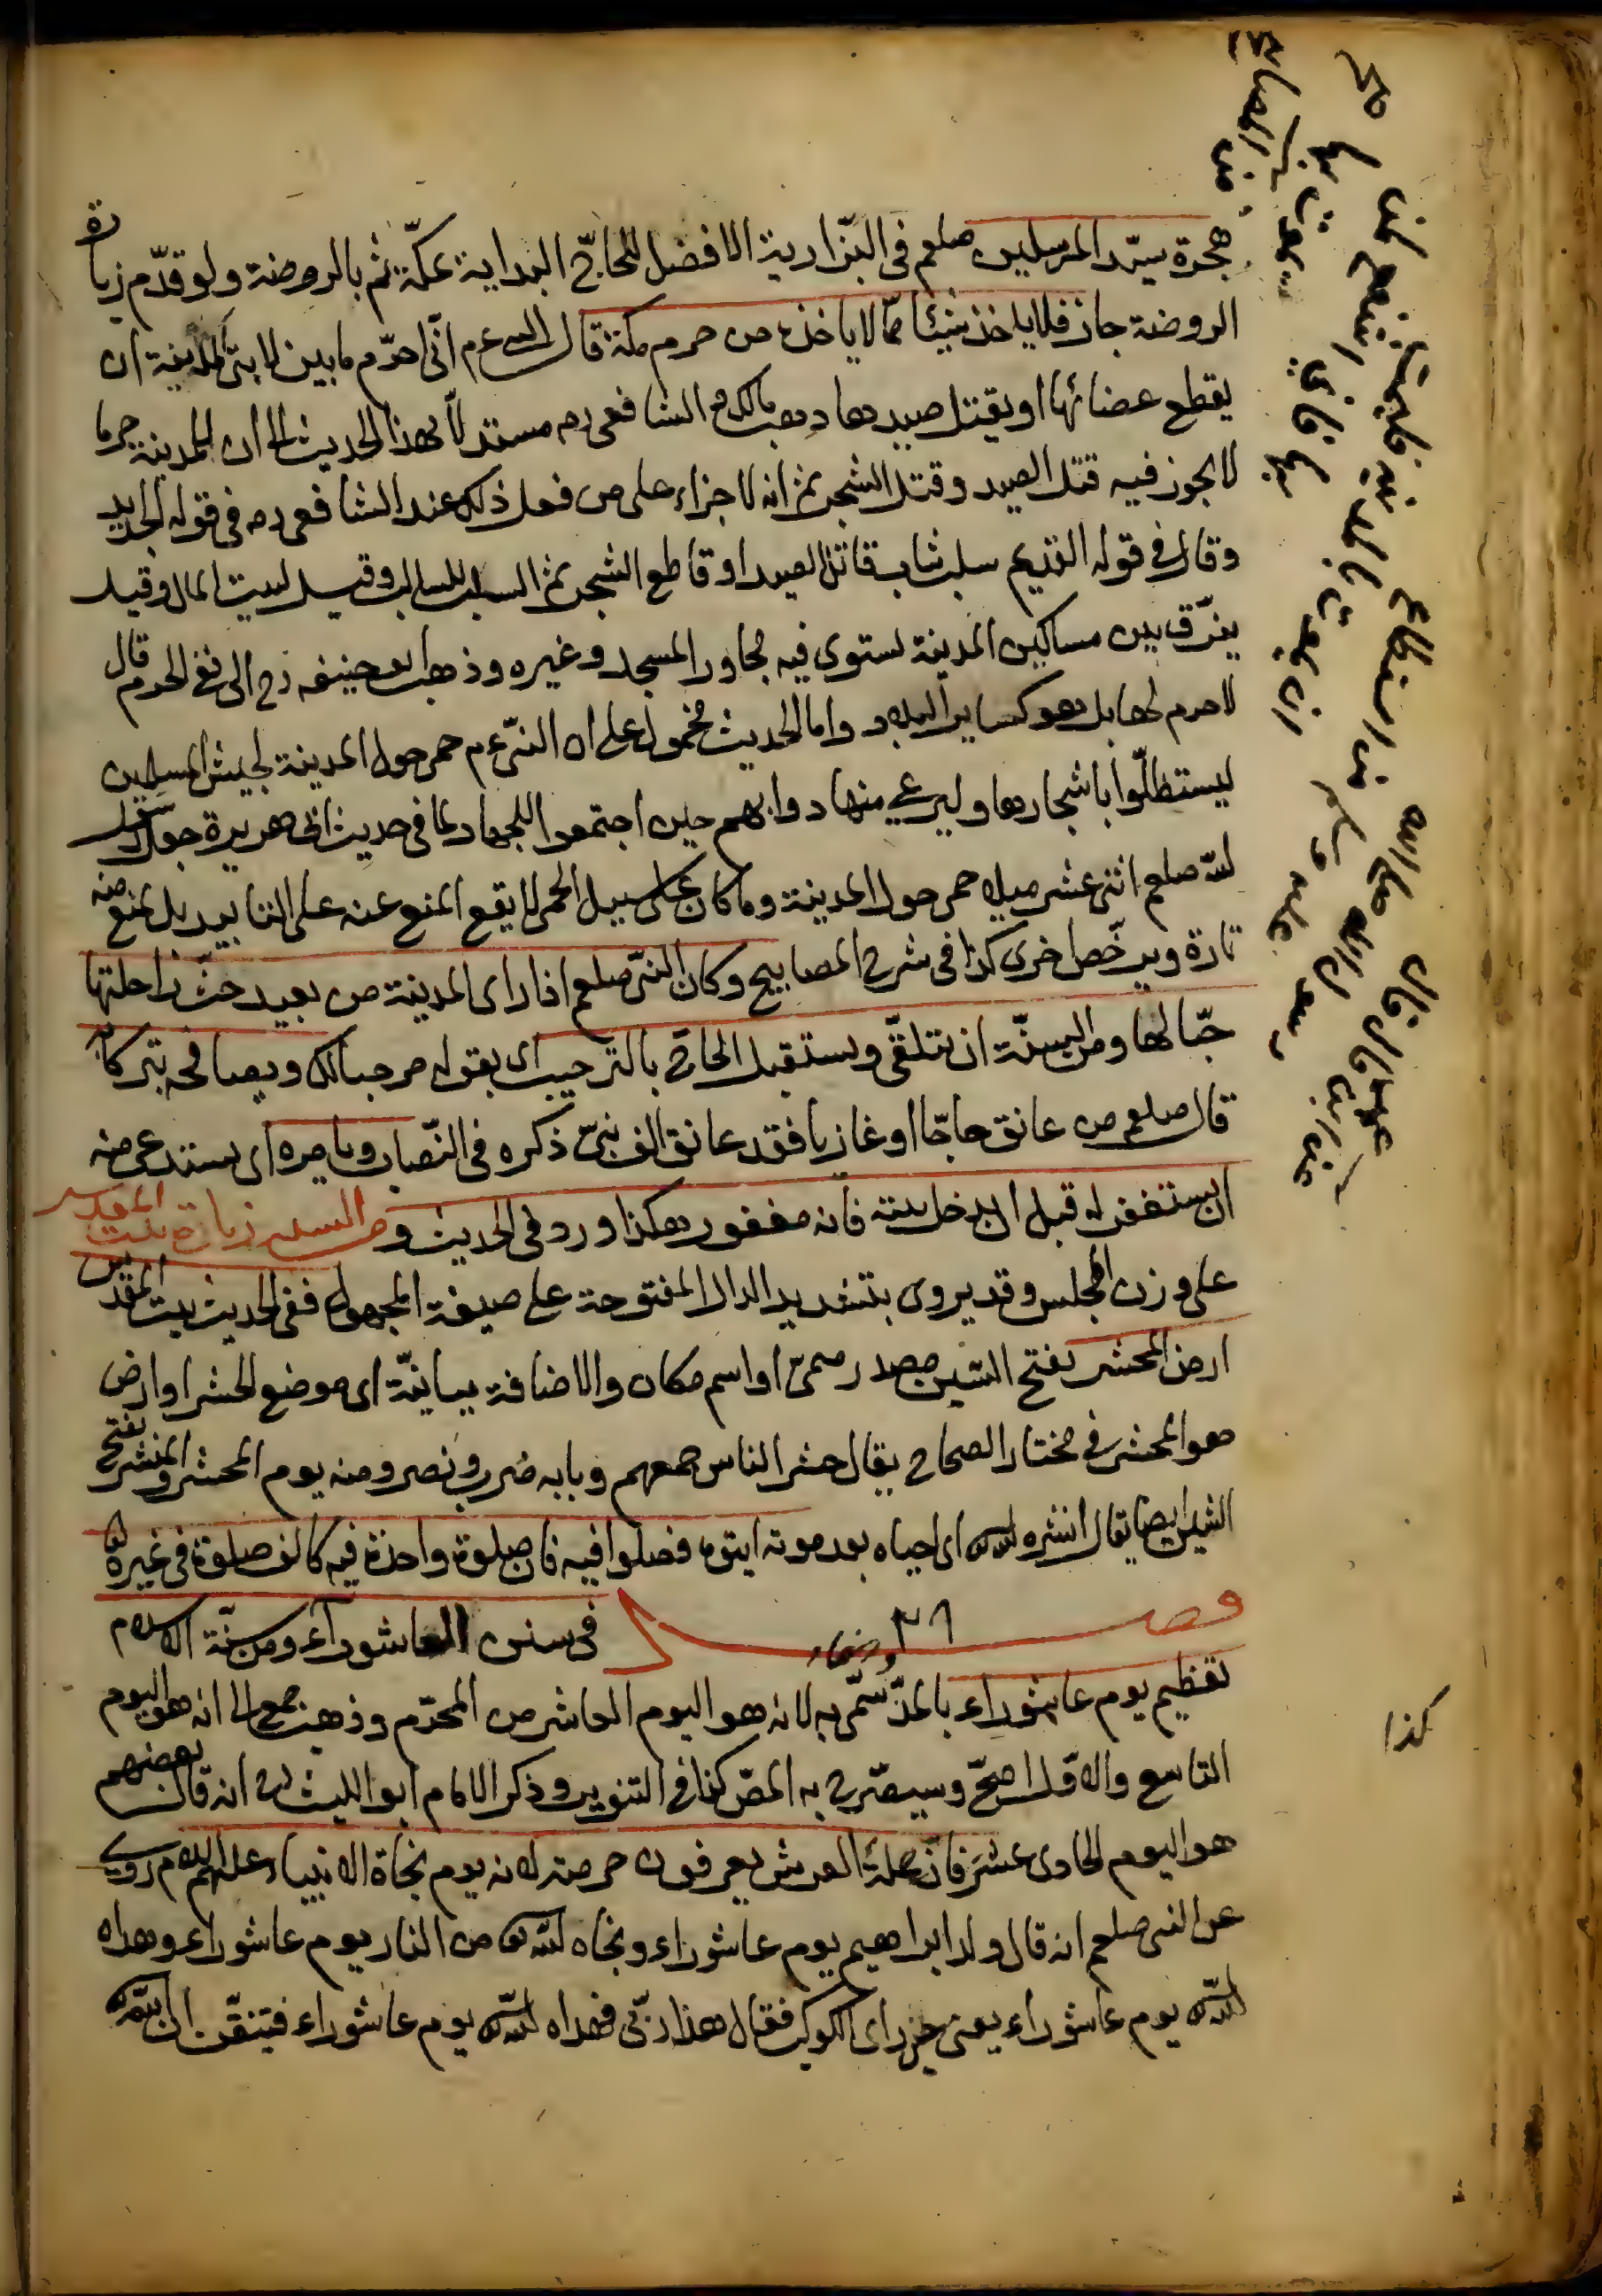 هجرة سيّد المرسلين صلعم فى البزّازية الافضل للحاجّ البداية بمكّة ثم بالروضة ولو قدّم زيارة
الروضة جاز فلا ياخذ شيئا ممّا لا ياخذه من حرم مكة قال النبى عم انّى احرّم ما بين لابتى المدينة ان
يقطع عضائها او يقتل صيدها ذهب مالك والشافعى رح مستدلّا بهذا الحديث الى ان للمدينة حرما
لا يجوز فيه قتل الصيد وقتل الشجر ثم انه لا جزاء على من فعل ذلك عند الشافعى رح فى قوله الجديد
وقال فى قوله القديم سلب ثياب قاتل الصيد او قاطع الشجر ثم السلب للسالب وقيل لبيت المال وقيل
يفرّق بين مساكين المدينة يستوى فيه مجاور المسجد وغيره وذهب ابو حنيفة رح الى نفى الحرم قال
لا حرم لها بل هو كساير البلاد واما الحديث فمحمول على ان النبى عم حمى حول المدينة لجيش المسلمين
ليستظلّوا باشجارها وليرعى منها دوابهم حين اجتمعوا للجهاد كما فى حديث ابى هريرة جعل رسول
الله صلعم اثنى عشر ميلا حمى حول المدينة وما كان على سبيل الحمى لا يقع المنع عنه على التابيد بل يمنع منه
تارة ويرخّص اخرى كذا فى شرح المصابيح وكان النبى صلعم اذا راى المدينة من بعيد حثّ راحلتها
حبّا لها ومن السنّة ان يتلقّى ويستقبل الحاجّ بالترحيب اى بقوله مرحبا لك ويصافحه تبركا
قال صلعم من عانق حاجّا او غازيا فقد عانق الف نبىّ ذكره فى النّصاب ويامره اى يستدعى منه
ان يستغفر له قبل ان يدخل بيته فانه مغفور هكذا ورد فى الحديث ومن السنن زيارة بيت المقدس
على وزن المجلس وقد يروى بتشديد الدال المفتوحة على صيغة المجهول ففى الحديث بيت المقدس
ارض المحشر بفتح الشين مصدر ميمىّ او اسم مكان والاضافة بيانيّة اى موضع الحشر او ارض
هو المحشر فى مختار الصحاح يقال حشر الناس جمعهم وبابه ضرب ونصر ومنه يوم المحشر والمنشر بفتح
الشين ايضا يقال انشره الله اى احياه بعد موته ايتوه فصلوا فيه فان صلوة واحدة فيه كالف صلوة فى غيره
فصل ٣٦ فى سنن العاشوراء ومن سنّة الاسلام
تعظيم يوم عاشوراء بالمدّ سمّى به لانه هو اليوم العاشر من المحرّم وذهب جمع الى انه هو اليوم
التاسع والاوّل اصحّ وسيصرّح به المصّ كذا فى التنوير وذكر الامام ابو الليث انه قال بعضهم
هو اليوم الحادى عشر فانّ حملة العرش يعرفون حرمته لانه يوم نجاة الانبياء عليهم السلام روى
عن النبى صلعم انه قال ولد ابراهيم يوم عاشوراء ونجاه الله من النار يوم عاشوراء وهداه
الله يوم عاشوراء يعنى حين راى الكوكب فقال هذا ربّى فهداه الله يوم عاشوراء فتيقّن ان
عن ابن عمر قال قال
رسول الله صلى الله
عليه وسلم من استطاع
ان يموت بالمدينة فليمت
بها فانى اشفع لمن
يموت بها صح
من المصابيح
كذا